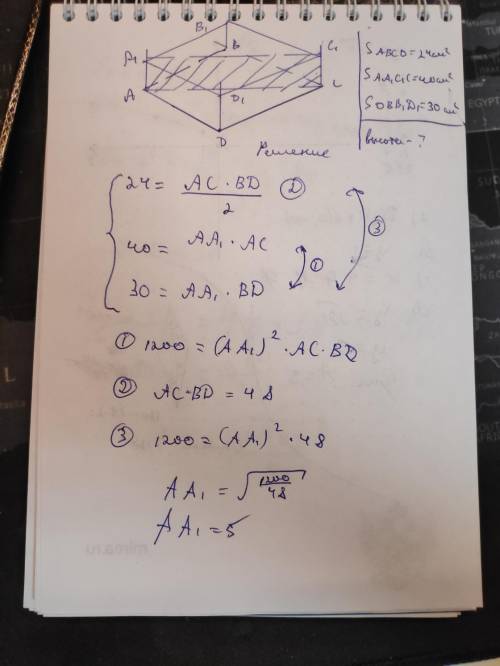 B₁
B
A₁
C₁
A
D₁
C
D
S ABCD = 24 см²
S AA₁C₁C = 40 см²
S DBB₁D₁ = 30 см²
высота - ?
Решение
24 = AC · BD / 2 ②
40 = AA₁ · AC
③
①
30 = AA₁ · BD
① 1200 = (AA₁)² · AC · BD
② AC · BD = 48
③ 1200 = (AA₁)² · 48
AA₁ = √1200/48
AA₁ = 5
EGYPT